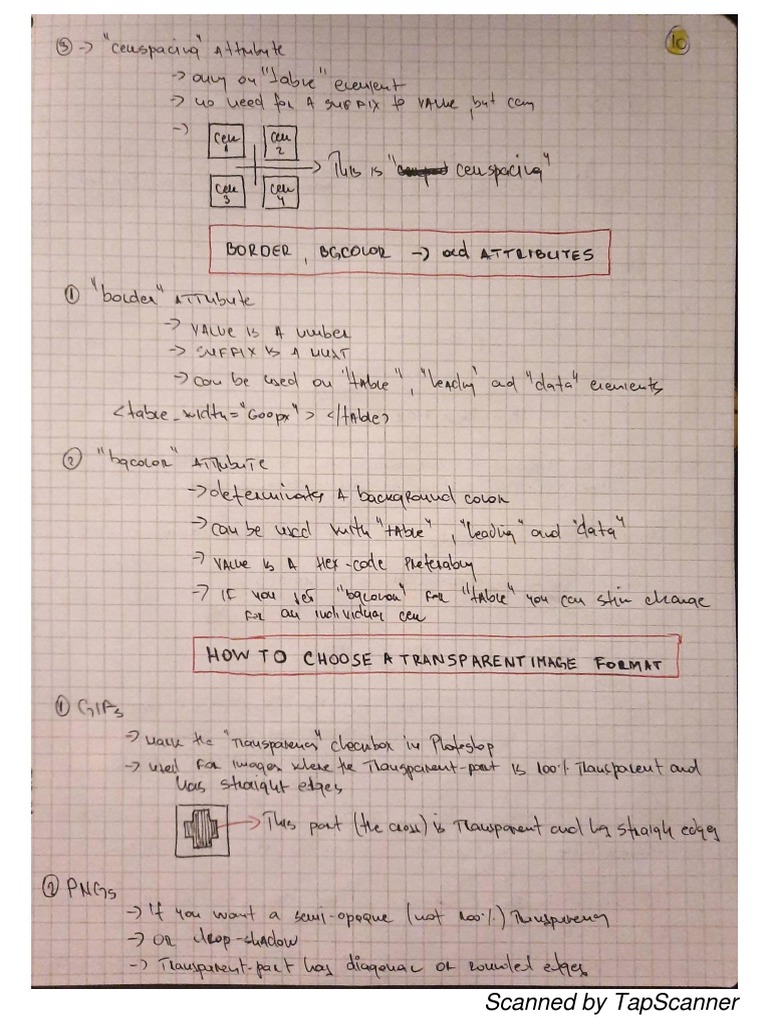 ③ -> "cellspacing" Attribute
10
-> only on "table" element
-> no need for a suffix to value, but can
->
cell 1
cell 2
cell 3
cell 4
-> This is "cellspacing"
BORDER, BGCOLOR -> old ATTRIBUTES
① "border" Attribute
-> value is a number
-> suffix is a must
-> can be used on "table", "heading" and "data" elements
<table_width="600px"> </table>
② "bgcolor" Attribute
-> determinates a background color
-> can be used with "table", "heading" and "data"
-> value is a Hex-code preferably
-> If you set "bgcolor" for "table" you can still change
for an individual cell
HOW TO CHOOSE A TRANSPARENT IMAGE FORMAT
① GIFs
-> mark the "Transparency" checkbox in Photoshop
-> used for images where the Transparent-part is 100% Transparent and
has straight edges
-> This part (the cross) is Transparent and has straigh edges
② PNGs
-> If you want a semi-opaque (not 100%) Transparency
-> or drop-shadow
-> Transparent-part has diagonal or rounded edges
Scanned by TapScanner